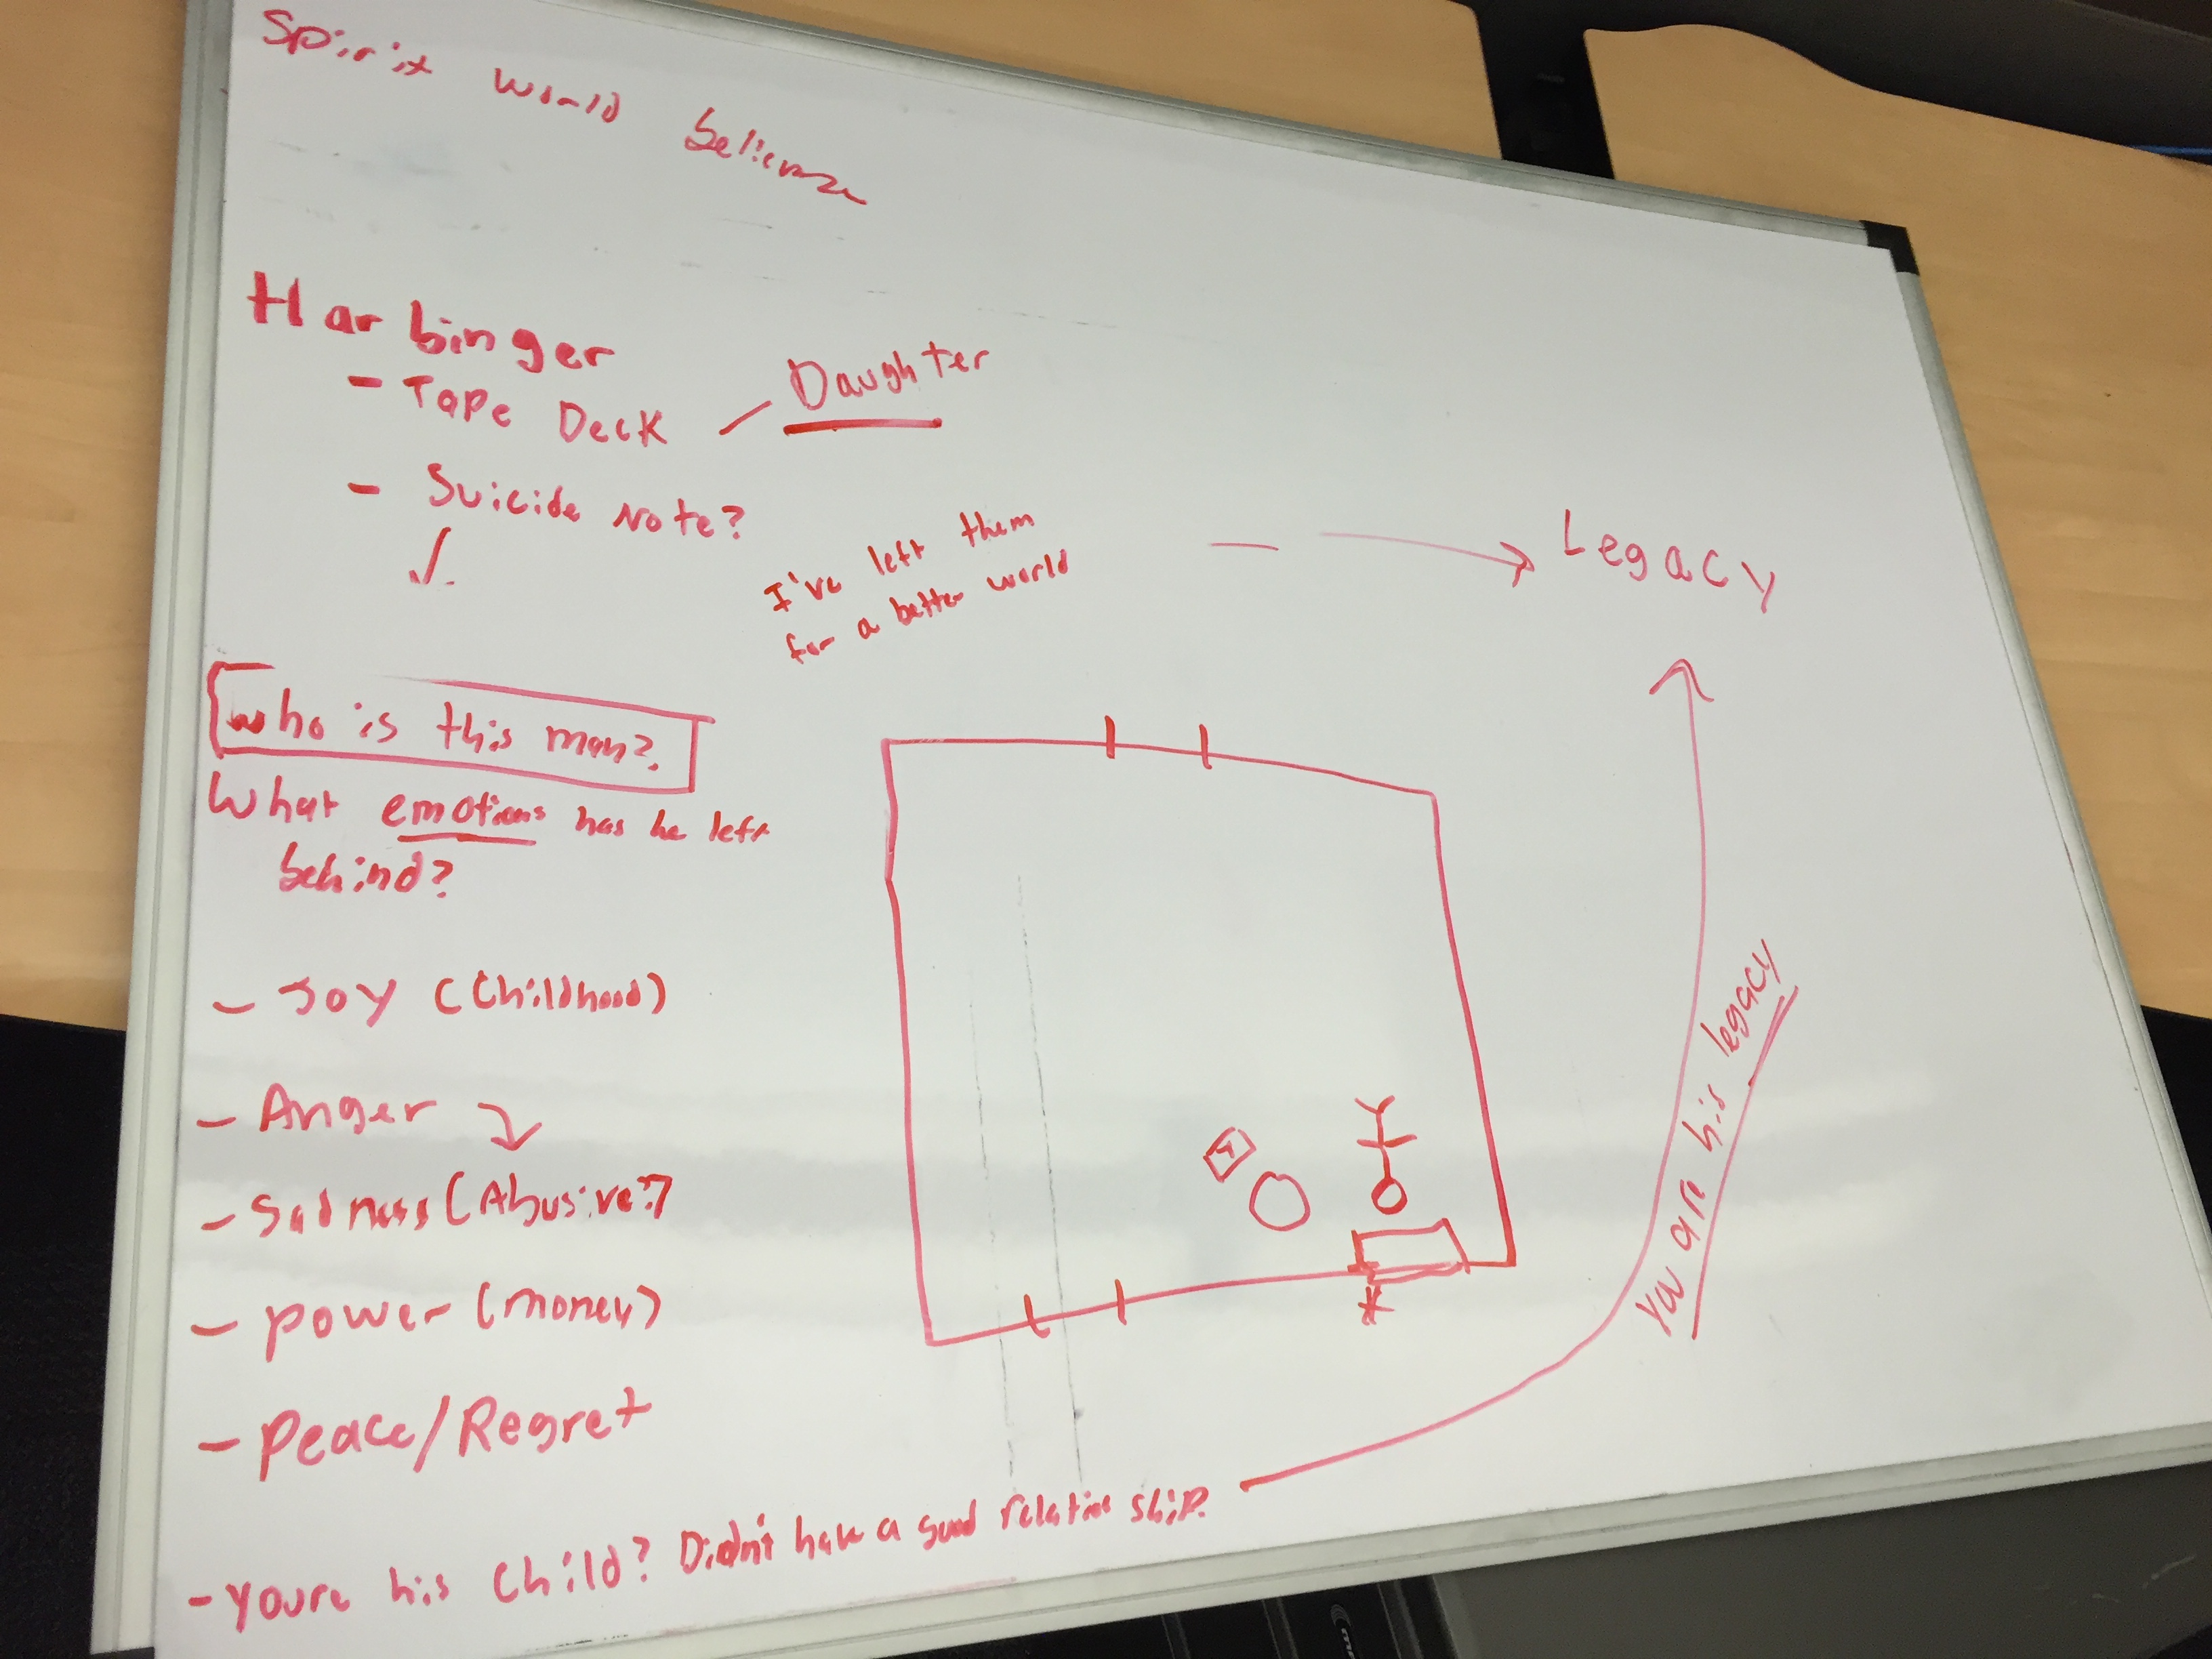 Spirit World
Harbinger
- Tape Deck - Daughter
- Suicide Note?
I've left them
for a better world
Legacy
Who is this man?
What emotions has he left
behind?
- Joy (Childhood)
- Anger
- Sadness (Abusive?)
- Power (Money)
- Peace/Regret
- Youre his Child? Didn't have a good relationship.
You are his legacy